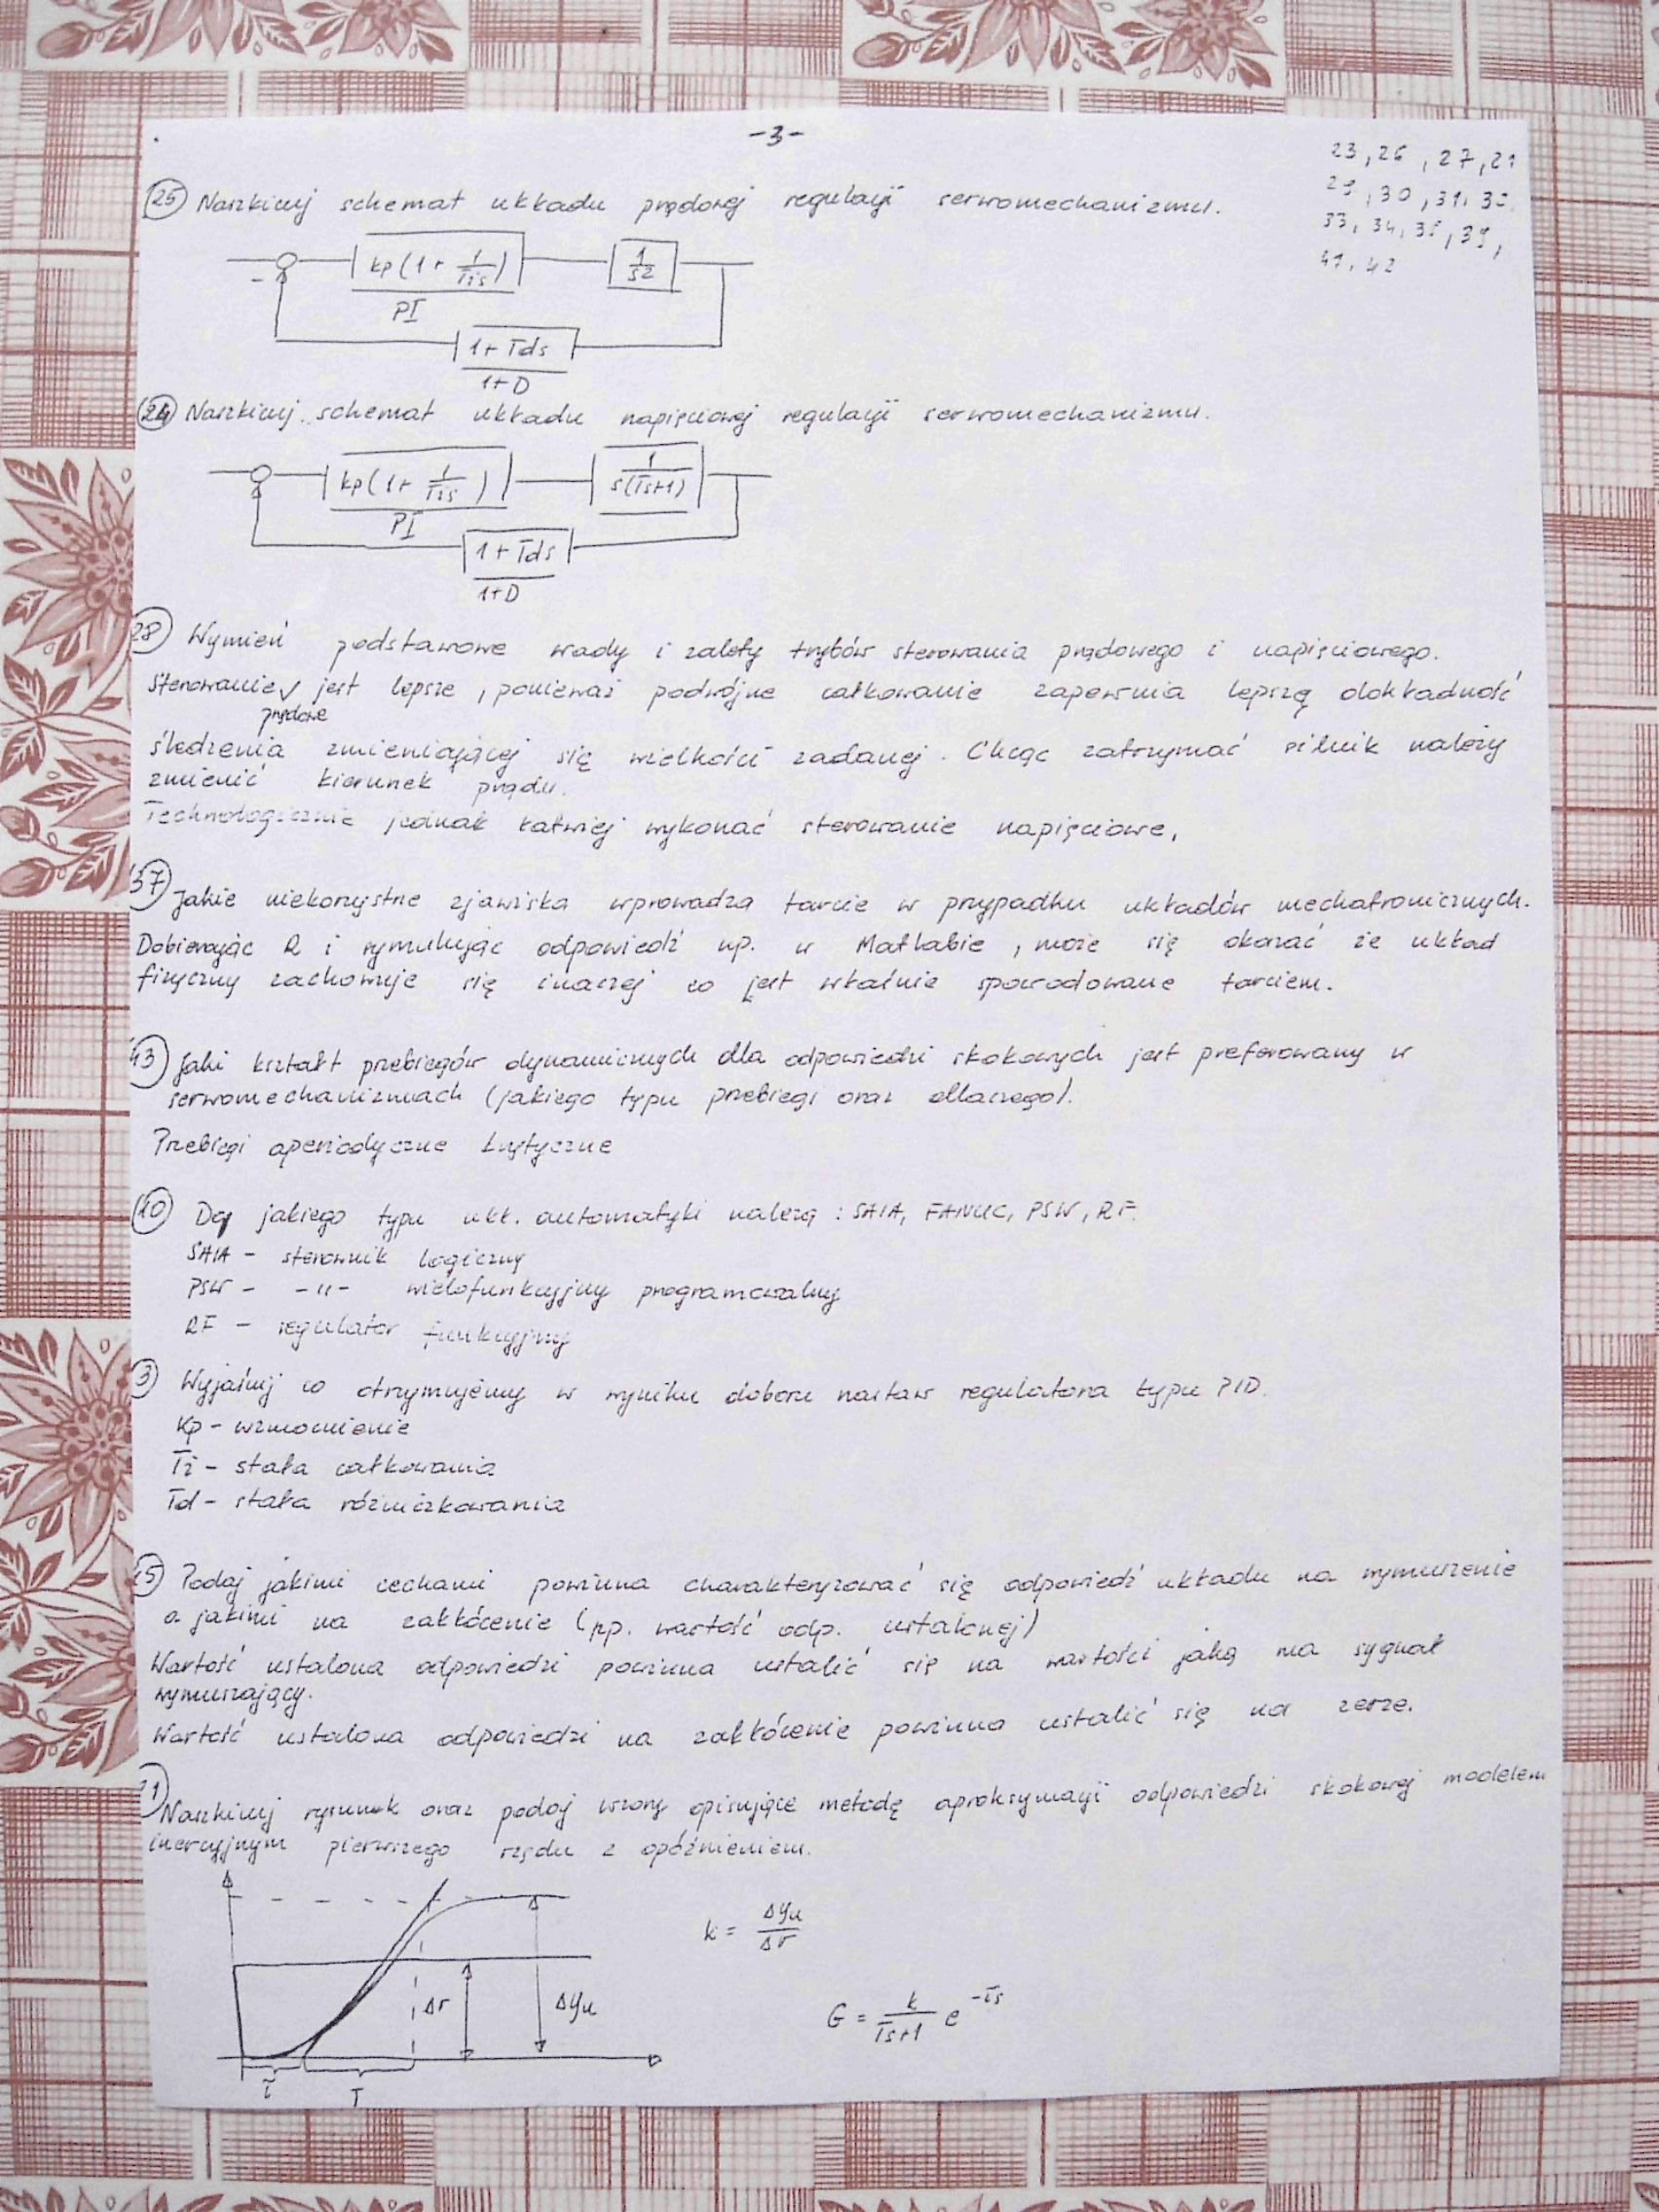 -3-
23, 26, 27, 21
29, 30, 31, 32,
33, 34, 35, 39,
41, 42
25 Naszkicuj schemat układu prądowej regulacji serwomechanizmu.
kp(1+ 1/Tis)
1/s2
-
PI
1+Tds
1+D
24 Naszkicuj schemat układu napięciowej regulacji serwomechanizmu.
kp(1+ 1/Tis)
1/s(Ts+1)
PI
1+Tds
1+D
28 Wymień podstawowe wady i zalety trybów sterowania prądowego i napięciowego.
Sterowanie prądowe jest lepsze, ponieważ podwójne całkowanie zapewnia lepszą dokładność
śledzenia zmieniającej się wielkości zadanej. Chcąc zatrzymać silnik należy
zmienić kierunek prądu.
Technologicznie jednak łatwiej wykonać sterowanie napięciowe,
37 Jakie niekorzystne zjawiska wprowadza tarcie w przypadku układów mechatronicznych.
Dobierając R i symulując odpowiedź np. w Matlabie, może się okazać że układ
fizyczny zachowuje się inaczej co jest właśnie spowodowane tarciem.
43 Jaki kształt przebiegów dynamicznych dla odpowiedzi skokowych jest preferowany w
serwomechanizmach (jakiego typu przebiegi oraz dlaczego).
Przebiegi aperiodyczne krytyczne
10 Do jakiego typu ukł. automatyki należą : SAIA, FANUC, PSW, RF.
SAIA - sterownik logiczny
PSW - -11- wielofunkcyjny programowalny
RF - regulator funkcyjny
3 Wyjaśnij co otrzymujemy w wyniku doboru nastaw regulatora typu PID.
Kp - wzmocnienie
Ti - stała całkowania
Td - stała różniczkowania
5 Podaj jakimi cechami powinna charakteryzować się odpowiedź układu na wymuszenie
a jakimi na zakłócenie (np. wartość odp. ustalonej)
Wartość ustalona odpowiedzi powinna ustalić się na wartości jaką ma sygnał
wymuszający.
Wartość ustalona odpowiedzi na zakłócenie powinna ustalić się na zerze.
21 Naszkicuj rysunek oraz podaj wzory opisujące metodę aproksymacji odpowiedzi skokowej modelem
inercyjnym pierwszego rzędu z opóźnieniem.
k = Δyu/Δr
Δr
Δyu
G = k/Ts+1 e^-τs
τ
T